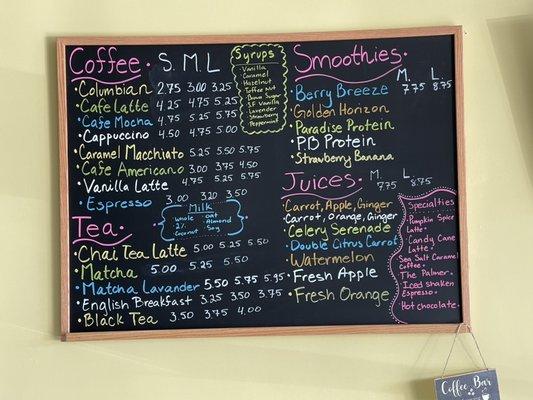 Coffee. S. M. L
Columbian 2.75 3.00 3.25
Cafe Latte 4.25 4.75 5.25
Cafe Mocha 4.75 5.00 5.25
Cappuccino 4.50 4.75 5.00
Caramel Macchiato 5.25 5.50 5.75
Cafe Americano 3.00 3.75 4.50
Vanilla Latte 4.75 5.25 5.75
Espresso 3.00 3.20 3.50
Syrups
Vanilla
Caramel
Hazelnut
Toffee Nut
Brown Sugar
S.F Vanilla
Lavender
Strawberry
Peppermint
Milk
Whole Oat
2% Almond
Coconut Soy
Tea.
Chai Tea Latte 5.00 5.25 5.50
Matcha 5.00 5.25 5.50
Matcha Lavander 5.50 5.75 5.95
English Breakfast 3.25 3.50 3.75
Black Tea 3.50 3.75 4.00
Smoothies. M. L.
7.75 8.75
Berry Breeze
Golden Horizon
Paradise Protein
PB Protein
Strawberry Banana
Juices. M. L.
7.75 8.75
Carrot, Apple, Ginger
Carrot, Orange, Ginger
Celery Serenade
Double Citrus Carrot
Watermelon
Fresh Apple
Fresh Orange
Specialties
Pumpkin Spice
Latte
Candy Cane
Latte
Sea Salt Caramel
Coffee
The Palmer
Iced shaken
Espresso
Hot chocolate
Coffee Bar